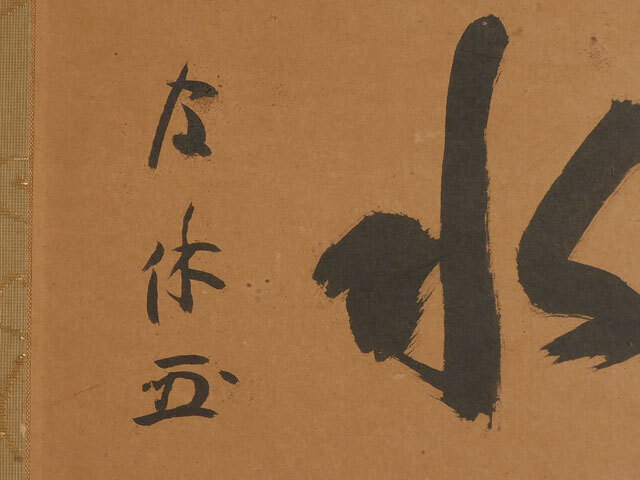 水
左休